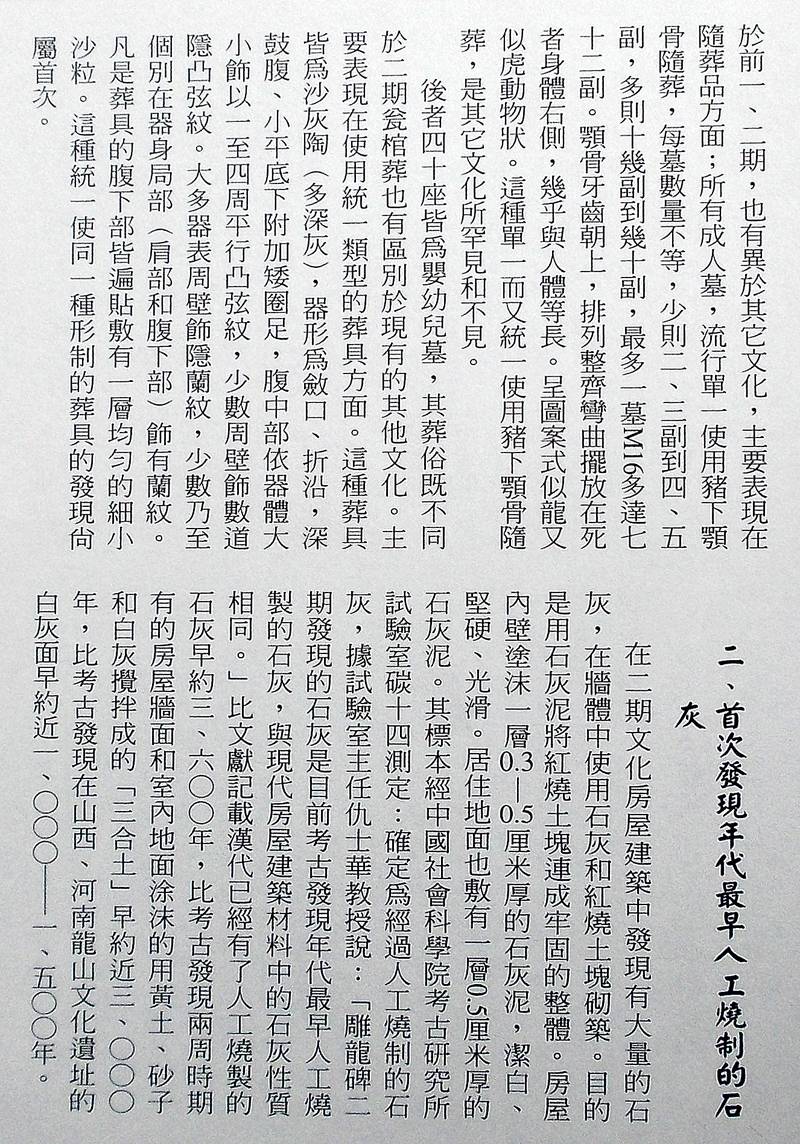 於前一、二期，也有異於其它文化，主要表現在
隨葬品方面；所有成人墓，流行單一使用豬下顎
骨隨葬，每墓數量不等，少則二、三副到四、五
副，多則十幾副到幾十副，最多一墓M16多達七
十二副。顎骨牙齒朝上，排列整齊彎曲擺放在死
者身體右側，幾乎與人體等長。呈圖案式似龍又
似虎動物狀。這種單一而又統一使用豬下顎骨隨
葬，是其它文化所罕見和不見。
後者四十座皆爲嬰幼兒墓，其葬俗既不同
於二期瓮棺葬也有區別於現有的其他文化。主
要表現在使用統一類型的葬具方面。這種葬具
皆爲沙灰陶（多深灰），器形爲斂口、折沿，深
鼓腹、小平底下附加矮圈足，腹中部依器體大
小飾以一至四周平行凸弦紋，少數周壁飾數道
隱凸弦紋。大多器表周壁飾隱蘭紋，少數乃至
個別在器身局部（肩部和腹下部）飾有蘭紋。
凡是葬具的腹下部皆遍貼敷有一層均勻的細小
沙粒。這種統一使同一種形制的葬具的發現尙
屬首次。
二、首次發現年代最早人工燒制的石
灰
在二期文化房屋建築中發現有大量的石
灰，在牆體中使用石灰和紅燒土塊砌築。目的
是用石灰泥將紅燒土塊連成牢固的整體。房屋
內壁塗沫一層0.3—0.5厘米厚的石灰泥，潔白、
堅硬、光滑。居住地面也敷有一層0.5厘米厚的
石灰泥。其標本經中國社會科學院考古硏究所
試驗室碳十四測定：確定爲經過人工燒制的石
灰，據試驗室主任仇士華教授說：「雕龍碑二
期發現的石灰是目前考古發現年代最早人工燒
製的石灰，與現代房屋建築材料中的石灰性質
相同。」比文獻記載漢代已經有了人工燒製的
石灰早約三、六〇〇年，比考古發現兩周時期
有的房屋牆面和室內地面涂沫的用黃土、砂子
和白灰攪拌成的「三合土」早約近三、〇〇〇
年，比考古發現在山西、河南龍山文化遺址的
白灰面早約近一、〇〇〇——一、五〇〇年。